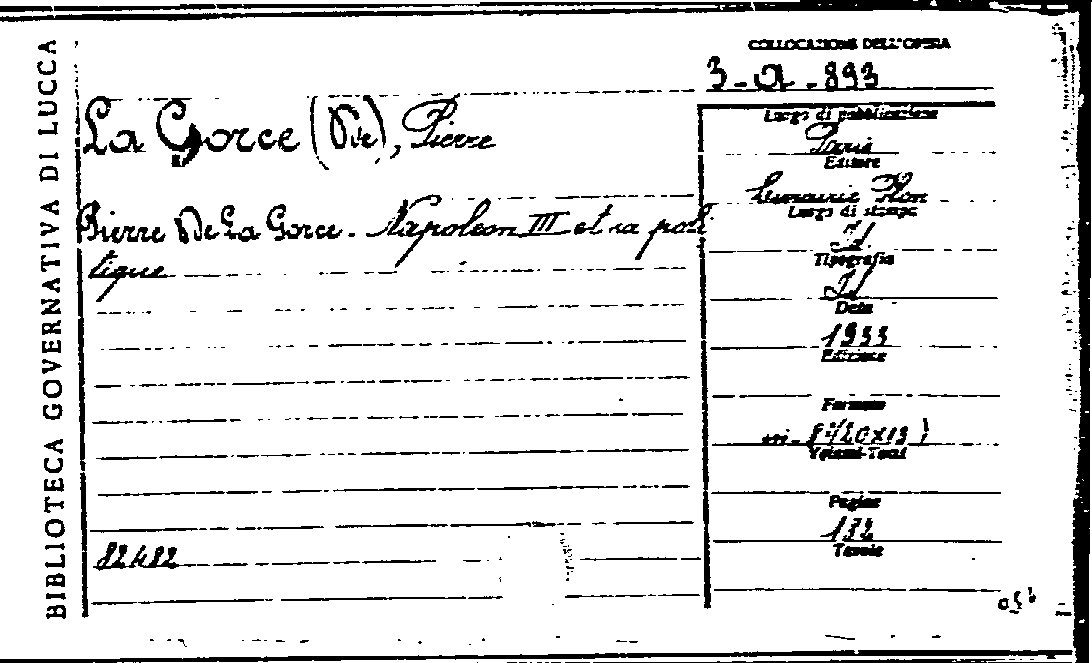 BIBLIOTECA GOVERNATIVA DI LUCCA
COLLOCAZIONE DELL'OPERA
3-a-893
La Gorce (De), Pierre
Pierre De La Gorce. Napoleon III et sa poli
tique
82482
Luogo di pubblicazione
Paris
Editore
Plon
Luogo di stampa
Id
Tipografia
Id
Data
1933
Edizione
Formato
in-8°(20x13)
Volumi-Tomi
Pagine
Tavole